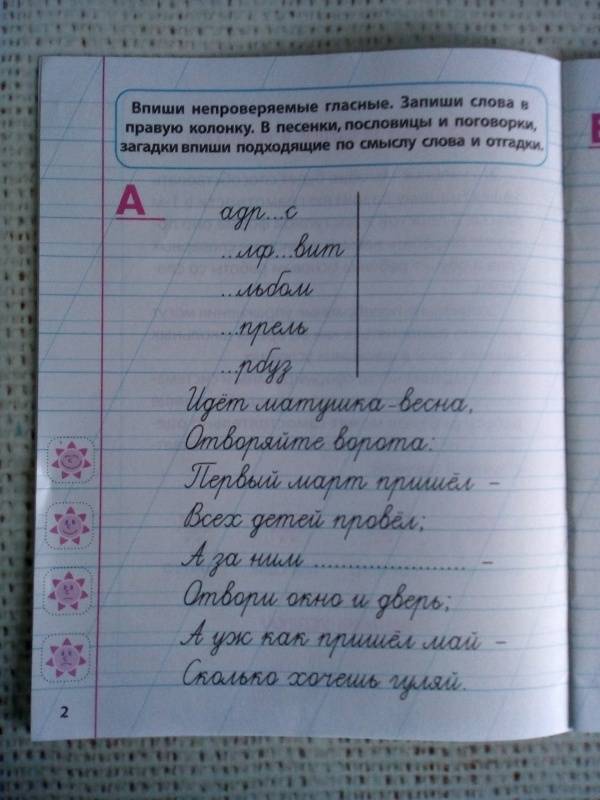 Впиши непроверяемые гласные. Запиши слова в
правую колонку. В песенки, пословицы и поговорки,
загадки впиши подходящие по смыслу слова и отгадки.
А
адр...с
...лф...вит
...льбом
...прель
...рбуз
Идёт матушка-весна,
Отворяйте ворота:
Первый март пришёл –
Всех детей провёл;
А за ним ...................... –
Отвори окно и дверь;
А уж как пришёл май –
Сколько хочешь гуляй.
2